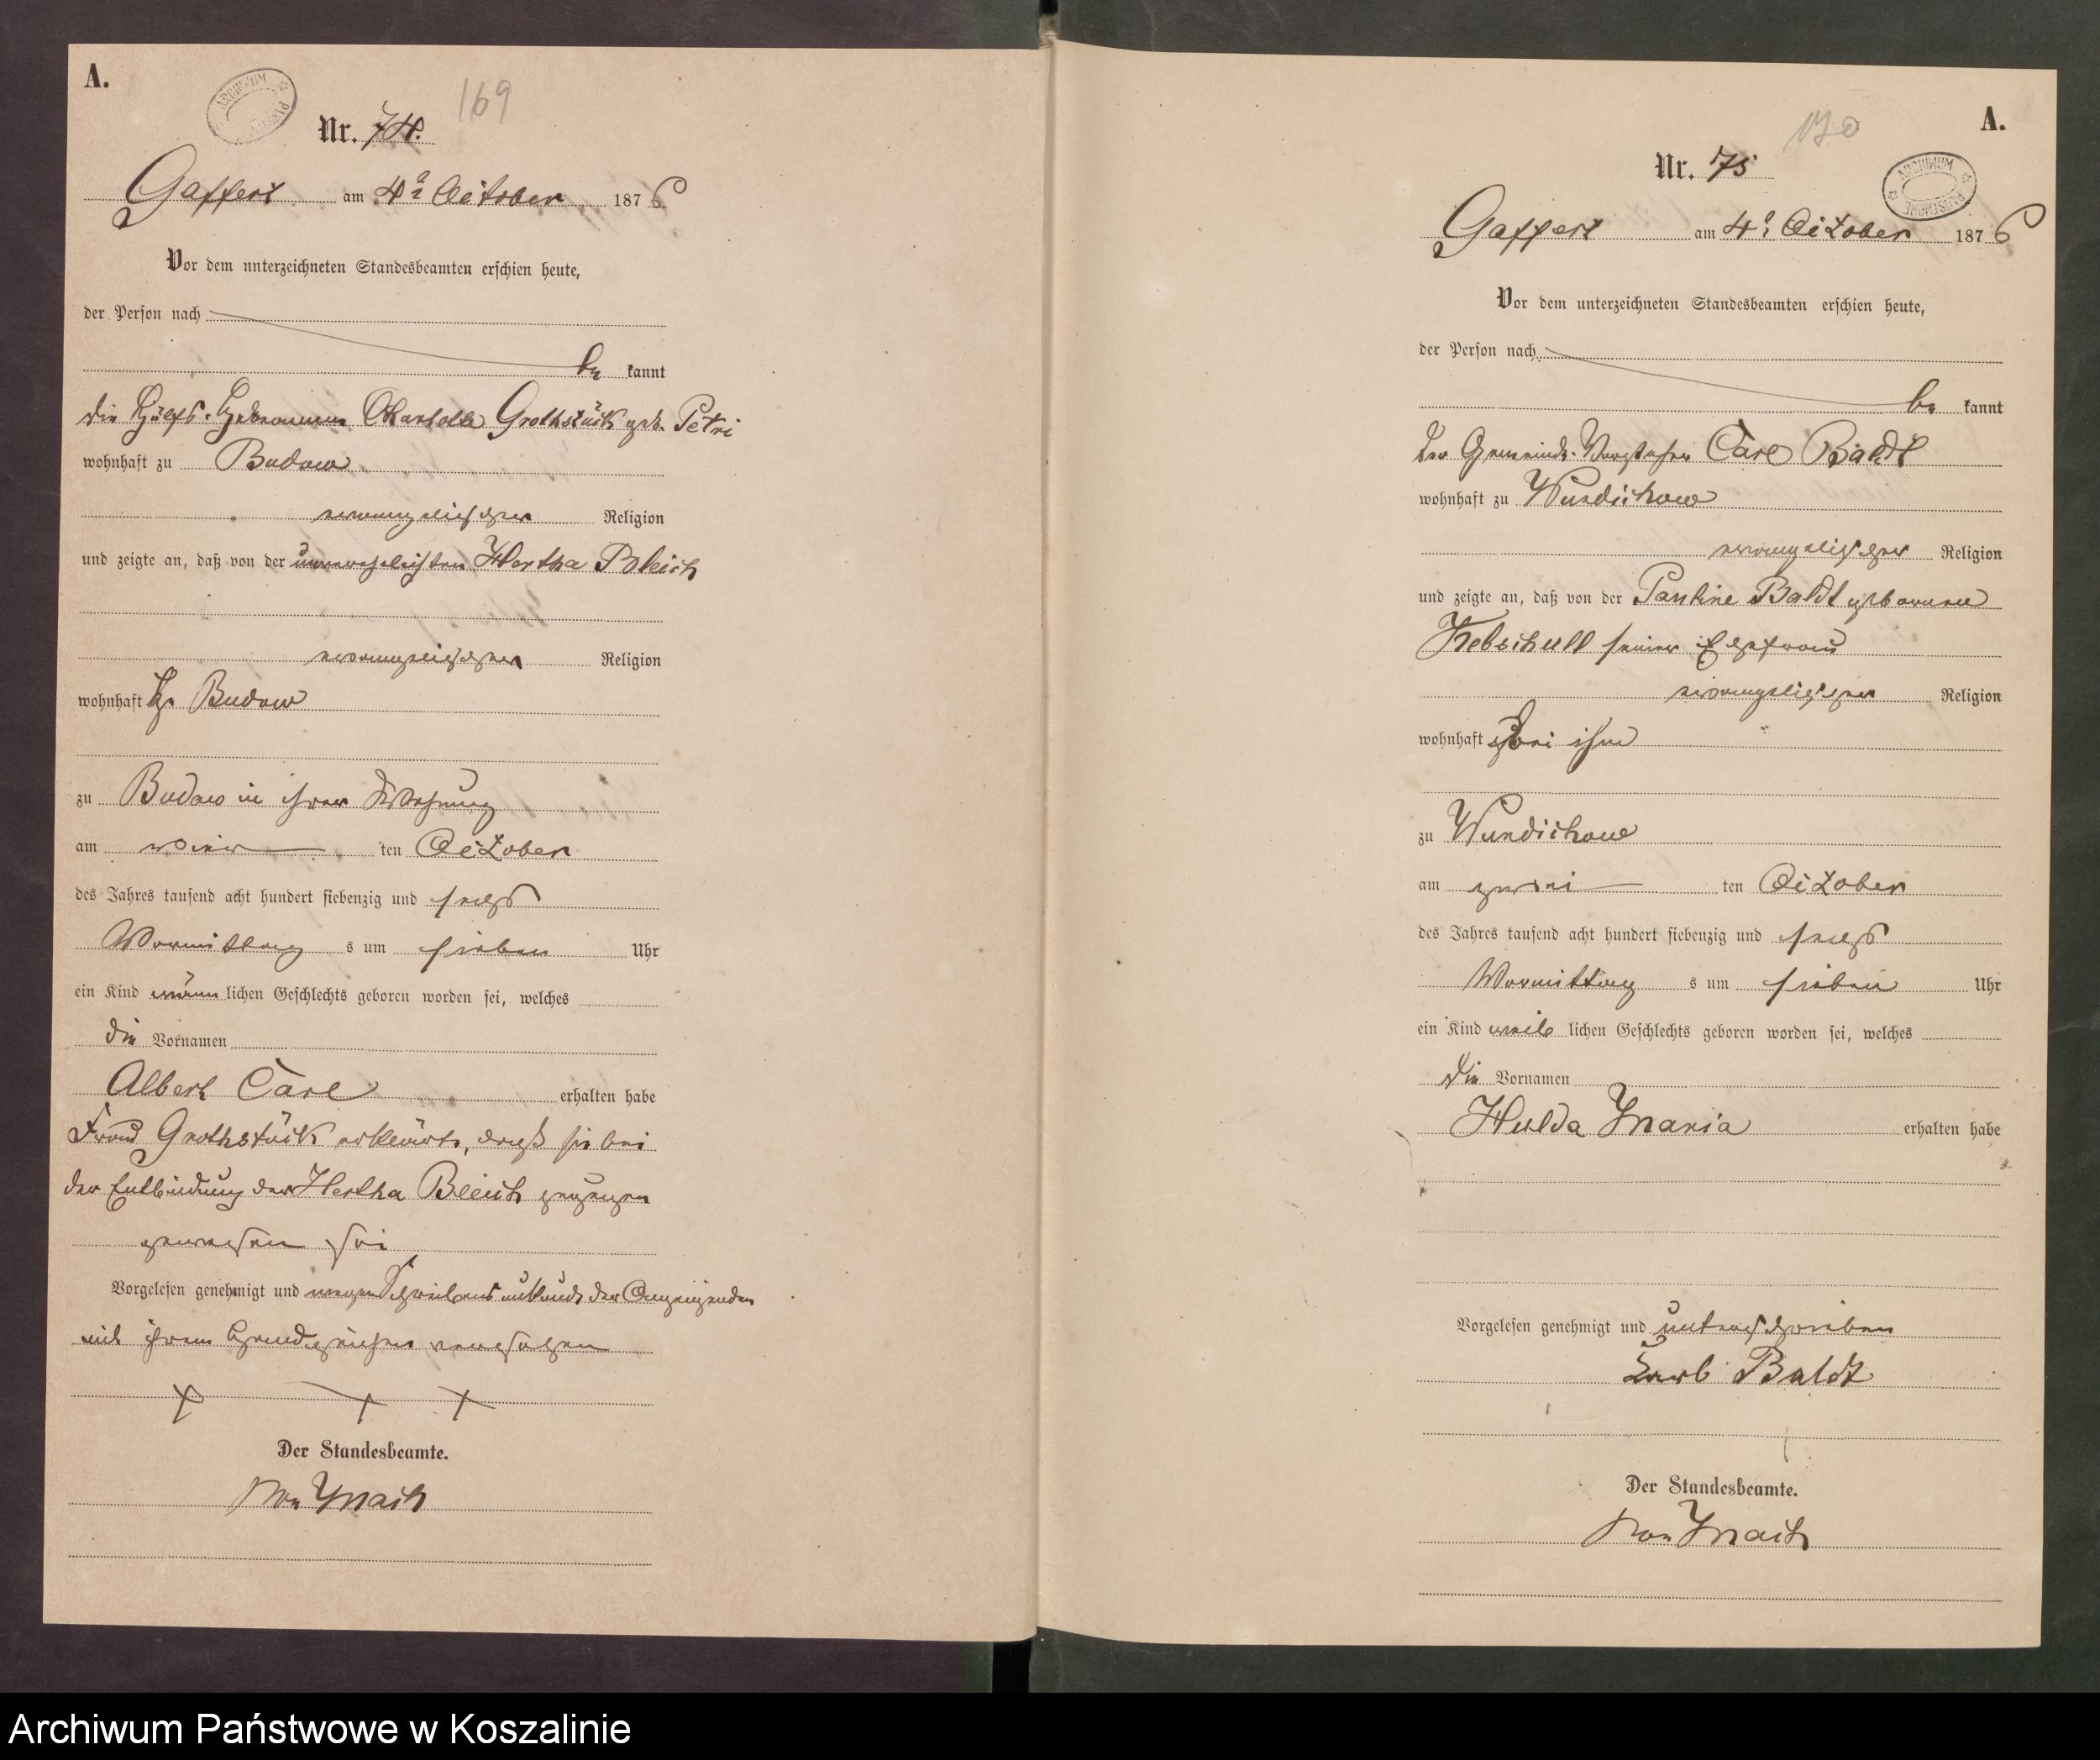 A.
169
Nr. 74.
Gaffert am 4t October 1876
Vor dem unterzeichneten Standesbeamten erschien heute,
der Person nach
be kannt
die Hülfs-Hebeamme Charlotte Grothstück geb. Petri
wohnhaft zu Budow
evangelischer Religion
und zeigte an, daß von der unverehelichten Hertha Bleich
evangelischer Religion
wohnhaft zu Budow
zu Budow in ihrer Wohnung
am vier ten October
des Jahres tausend acht hundert siebenzig und sechs
Vormittag s um sieben Uhr
ein Kind männ lichen Geschlechts geboren worden sei, welches
die Vornamen
Albert Carl erhalten habe
Frau Grothstück erklärte, daß sie bei
der Entbindung der Hertha Bleich zugegen
gewesen sei
Vorgelesen genehmigt und wegen Schreibensunkunde der Anzeigenden
mit ihrem Handzeichen versehen
+ + +
Der Standesbeamte.
von Mach
A.
170
Nr. 75
ARCHIWUM PAŃSTWOWE
Gaffert am 4t October 1876
Vor dem unterzeichneten Standesbeamten erschien heute,
der Person nach
be kannt
Der Gemeinde-Vorsteher Carl Baldt
wohnhaft zu Wundichow
evangelischer Religion
und zeigte an, daß von der Pauline Baldt geborene
Kebschull seiner Ehefrau
evangelischer Religion
wohnhaft bei ihm
zu Wundichow
am zwei ten October
des Jahres tausend acht hundert siebenzig und sechs
Vormittag s um sieben Uhr
ein Kind weib lichen Geschlechts geboren worden sei, welches
die Vornamen
Hulda Maria erhalten habe
Vorgelesen genehmigt und unterschrieben
Carl Baldt
Der Standesbeamte.
von Mach
Archiwum Państwowe w Koszalinie